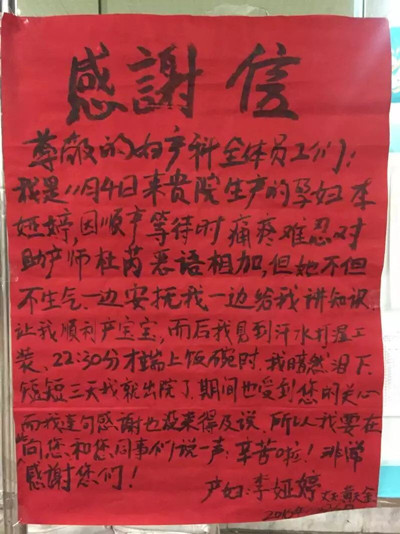 感謝信
尊敬的妇产科全体员工们:
我是11月4日来贵院生产的孕妇李
娅婷,因顺产等待时痛疼难忍对
助产师杜芮恶语相加,但她不但
不生气一边安抚我一边给我讲知识
让我顺利产宝宝,而后我見到汗水打湿工
装、22:30分才端上饭碗时.我暗然泪下.
短短三天我就出院了期间也受到您的关心
而我连句感谢也没来得及说.所以我要在
向您和您同事们说一声:辛苦啦!非常
感謝您们!
产妇:李娅婷